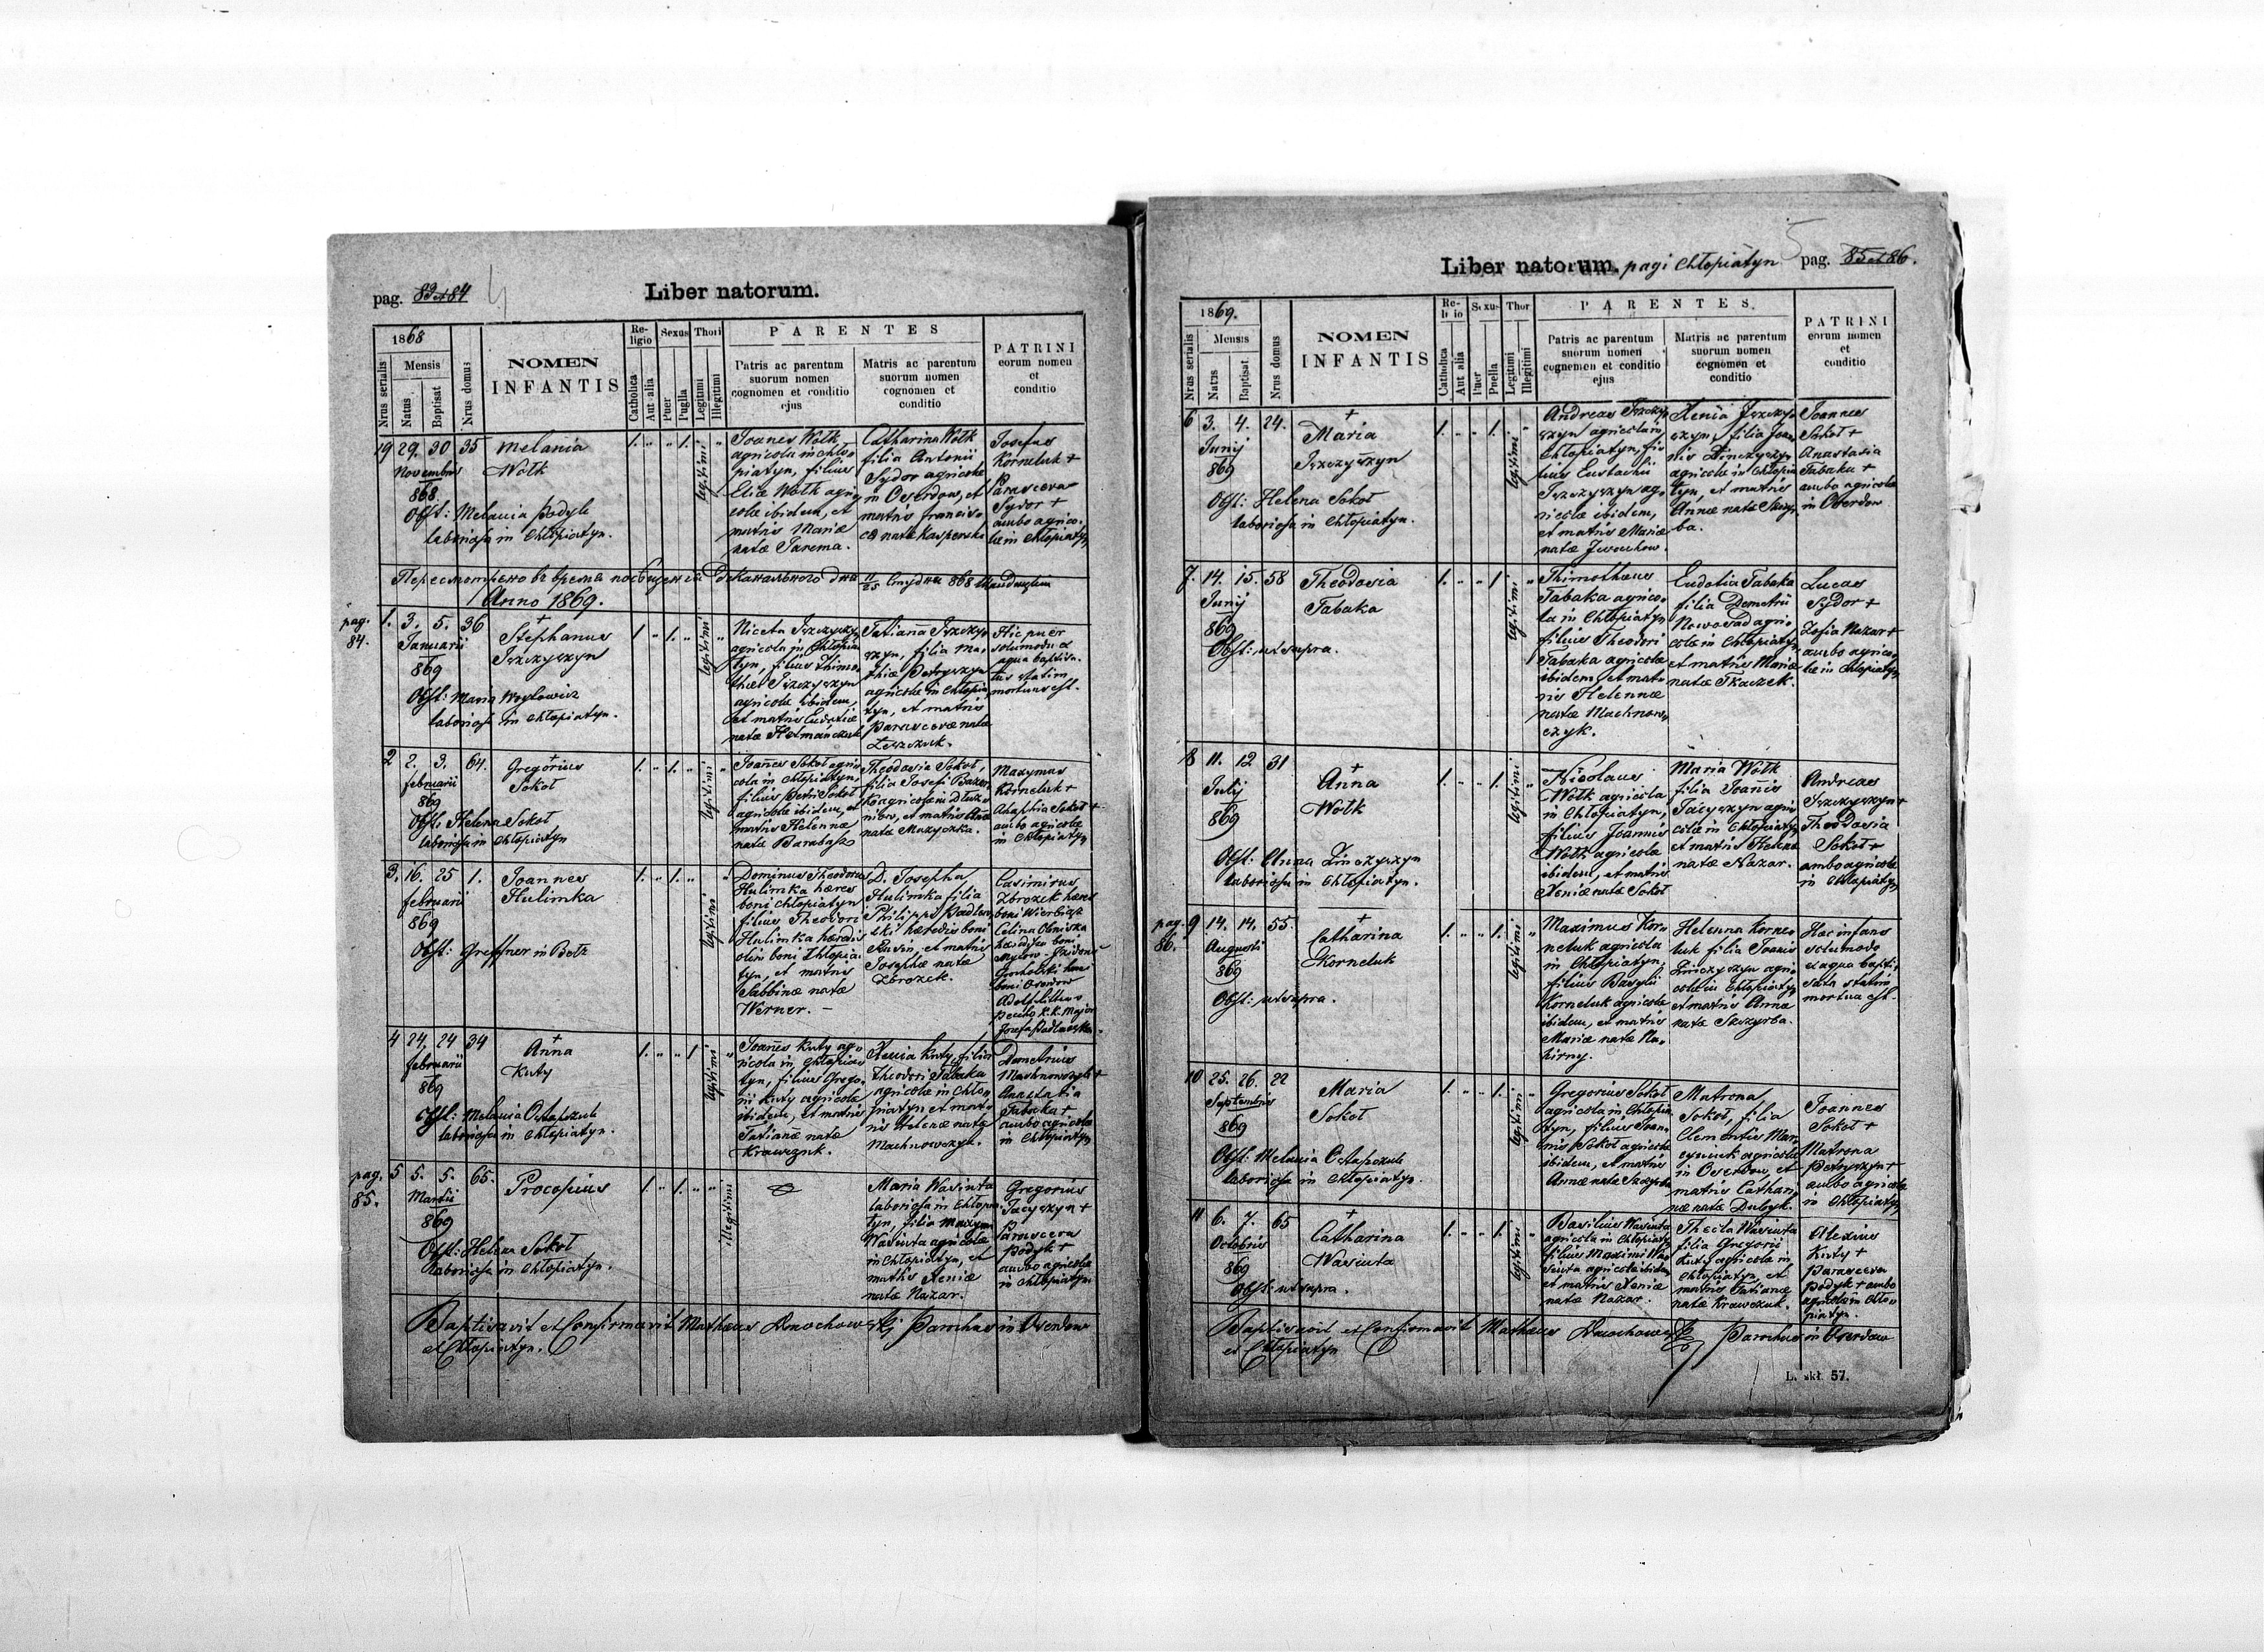 pag. 83 et 84
Liber natorum.
1868
Mensis
Nrus serialis
Natus
Baptisat
Nrus domus
NOMEN
INFANTIS
Religio
Catholica
Aut alia
Sexus
Puer
Puella
Thori
Legitimi
Illegitimi
PARENTES
Patris ac parentum
suorum nomen
cognomen et conditio
ejus
Matris ac parentum
suorum nomen
cognomen et
conditio
PATRINI
eorum nomen
et
conditio
19 29. 30 35 Melania
Novembris Wołk
868
Obst: Melania Podyk
laboriosa in Chłopiatyn.
legitimi
Joanes Wołk
agricola in Chło-
piatyn, filius
Eliæ Wołk agri-
colæ ibidem, et
matris Mariæ
natæ Jarema.
Catharina Wołk
filia Antonii
Sydor agricolæ
in Oserdow, et
matris Francisc
natæ Kasperska
Josefus
Korneluk +
Parascewa
Sydor +
ambo agrico-
læ in Chłopiatyn
Anno 1869.
pag.
84.
1. 3. 5. 36 Stephanus
Januarii Jszczyszyn
869
Obst: Maria Woytowicz
laboriosa in Chłopiatyn.
legitimi
Niceta Jszczyszyn
agricola in Chłopia-
tyn, filius Thimo-
thei Jszczyszyn
agricolæ ibidem,
et matris Eudociæ
natæ Hetmańczuk
Tatianna Jszczy-
szyn, filia Ma-
thiæ Petryszyn
agricolæ in Chłopia-
tyn, et matris
Parascevæ natæ
Leszczuk.
Hic puer
solummodo ex
aqua baptisa-
tus statim
mortuus est.
2 2. 3. 64. Gregorius
februarii Sokoł
869
Obst: Helena Sokoł
laboriosa in Chłopiatyn
legitimi
Joanes Sokoł agri-
cola in Chłopiatyn,
filius Petri Sokoł
agricolæ ibidem, et
matris Helennæ
natæ Barabasz
Theodosia Sokoł,
filia Josefi
agricolæ in Dłuż-
niow, et matris
natæ Muzyczka.
Maxymus
Korneluk +
Ahaphia Sokoł +
ambo agricolæ
in Chłopiatyn
3. 16. 25 1. Joannes
februarii Hulimka
869
Obst: Greffner in Bełz
legitimi
Dominus Theodorus
Hulimka hæres
boni Chłopiatyn
filius Theodori
Hulimka hæredis
olim boni Chłopia-
tyn, et matris
Sabbinæ natæ
Werner. –
D. Josepha
Hulimka filia
Philippi Padlew-
ski hæredis boni
Rusin, et matris
Josephæ natæ
Zbrozek.
Casimirus
Zbrozek hæres
boni Wierbiąż
Celina Obniska
hæredissa boni
Myców - Isidorus
Gorholski hæres
boni Oserdow
Adolf Littus
Pens. k. k. Major
Josefa Padlewska.
4 24, 24 34 Anna
februarii Kuty
869
Obst: Melania Ostapczuk
laboriosa in Chłopiatyn.
legitimi
Joanes Kuty ag-
ricola in Chłopia-
tyn, filius Grego-
rii Kuty agricolæ
ibidem, et matris
Tatianæ natæ
Krawczuk.
Xenia Kuty, filia
Theodori Tabaka
agricolæ in Chło-
piatyn et mat-
ris Helenæ natæ
Machnowczyk.
Demetrius
Machnowczyk +
Anastasia
Tabaka +
ambo agricolæ
in Chłopiatyn
pag.
85.
5 5. 5. 65. Procopius
Martii
869
Obst: Helena Sokoł
laboriosa in Chłopiatyn.
illegitimi
Maria Wasiuta
laboriosa in Chłopia-
tyn, filia Maxym
Wasiuta agricolæ
in Chłopiatyn, et
matris Xeniæ
natæ Nazar.
Gregorius
Jacyszyn +
Parascewa
Podyk +
ambo agricolæ
in Chłopiatyn
Baptisavit et Confirmavit Mathæus Dmochowskj Parochus in Oserdow
et Chłopiatyn.
Liber natorum. pagi Chłopiatyn
5
pag. 85 et 86.
1869.
Mensis
Nrus serialis
Natus
Baptisat
Nrus domus
NOMEN
INFANTIS
Religio
Catholica
Aut alia
Sexus
Puer
Puella
Thor
Legitimi
Illegitimi
PARENTES.
Patris ac parentum
suorum nomen
cognomen et conditio
ejus
Matris ac parentum
suorum nomen
cognomen et
conditio
PATRINI
eorum nomen
et
conditio
6 3. 4. 24. Maria
Junij Jszczyszyn
869
Obst: Helena Sokoł
laboriosa in Chłopiatyn.
legitimi
Andreas Jszczy-
szyn agricola in
Chłopiatyn, fi-
lius Eustachii
Jszczyszyn ag-
ricolæ ibidem,
et matris Mariæ
natæ Jwachow.
Xenia Jszczy-
szyn, filia Joan-
nis Zinczyszyn
agricolæ in Chłopia-
tyn, et matris
Annæ natæ Skczyr-
ba.
Joannes
Sokoł +
Anastasia
Tabaka +
ambo agricolæ
in Oserdow
7. 14. 15. 58 Theodosia
Junij Tabaka
869
Obst: ut supra.
legitimi
Thimotheus
Tabaka agrico-
la in Chłopiatyn
filius Theodori
Tabaka agricolæ
ibidem, et mat-
ris Helennæ
natæ Machnow-
czyk.
Eudotia Tabaka
filia Demetrii
Nowosad agri-
colæ in Chłopiatyn,
et matris Mariæ
natæ Tkaczek.
Lucas
Sydor +
Zofia Nazar +
ambo agrico-
læ in Chłopiatyn
8 11. 12 31 Anna
Julij Wołk
869
Obst: Anna Zinczyszyn
laboriosa in Chłopiatyn.
legitimi
Nicolaus
Wołk agricola
in Chłopiatyn,
filius Joannis
Wołk agricolæ
ibidem, et matris
Xeniæ natæ Sokoł
Maria Wołk
filia Joanis
Jacyszyn agri-
colæ in Chłopiatyn,
et matris Helenæ
natæ Nazar.
Andreas
Jszczyszyn +
Theodosia
Sokoł +
ambo agricolæ
in Chłopiatyn
pag.
86.
9 14. 14. 55. Catharina
Augusti Korneluk
869
Obst: ut supra.
legitimi
Maximus Kor-
neluk agricola
in Chłopiatyn,
filius Basylii
Korneluk agricolæ
ibidem, et matris
Mariæ natæ Na-
hirny.
Helenna Korne-
luk filia Joanis
Zinczyszyn agri-
colæ in Chłopiatyn,
et matris Anna
natæ Skczyrba.
Hæc infans
solumodo
ex aqua bapti-
sata statim
mortua est.
10 25. 26. 22 Maria
Septembris Sokoł
869
Obst: Melania Ostapczuk
laboriosa in Chłopiatyn.
legitimi
Gregorius Sokoł
agricola in Chłopia-
tyn, filius Joan-
nis Sokoł agricolæ
ibidem, et matris
Annæ natæ Skczyrba
Matrona
Sokoł, filia
Clementis Mar-
cyniuk agricolæ
in Oserdow, et
matris Cathari-
næ natæ Dubyk.
Joannes
Sokoł +
Matrona
Petryszyn +
ambo agricolæ
in Chłopiatyn
11 6. 7. 65 Catharina
Octobris Wasiuta
869
Obst: ut supra.
legitimi
Basilius Wasiuta
agricola in Chłopiatyn
filius Maximi Wa-
siuta agricolæ ibidem
et matris Xeniæ
natæ Nazar.
Thecla Wasiuta
filia Gregorii
Kuty agricolæ in
Chłopiatyn, et
matris Tatianæ
natæ Krawczuk.
Alexius
Kuty +
Parascewa
Podyk + ambo
agricolæ in Chło-
piatyn.
Baptisavit et Confirmavit Mathæus Dmochowskj Parochus in Oserdow
et Chłopiatyn
L. skł. 57.